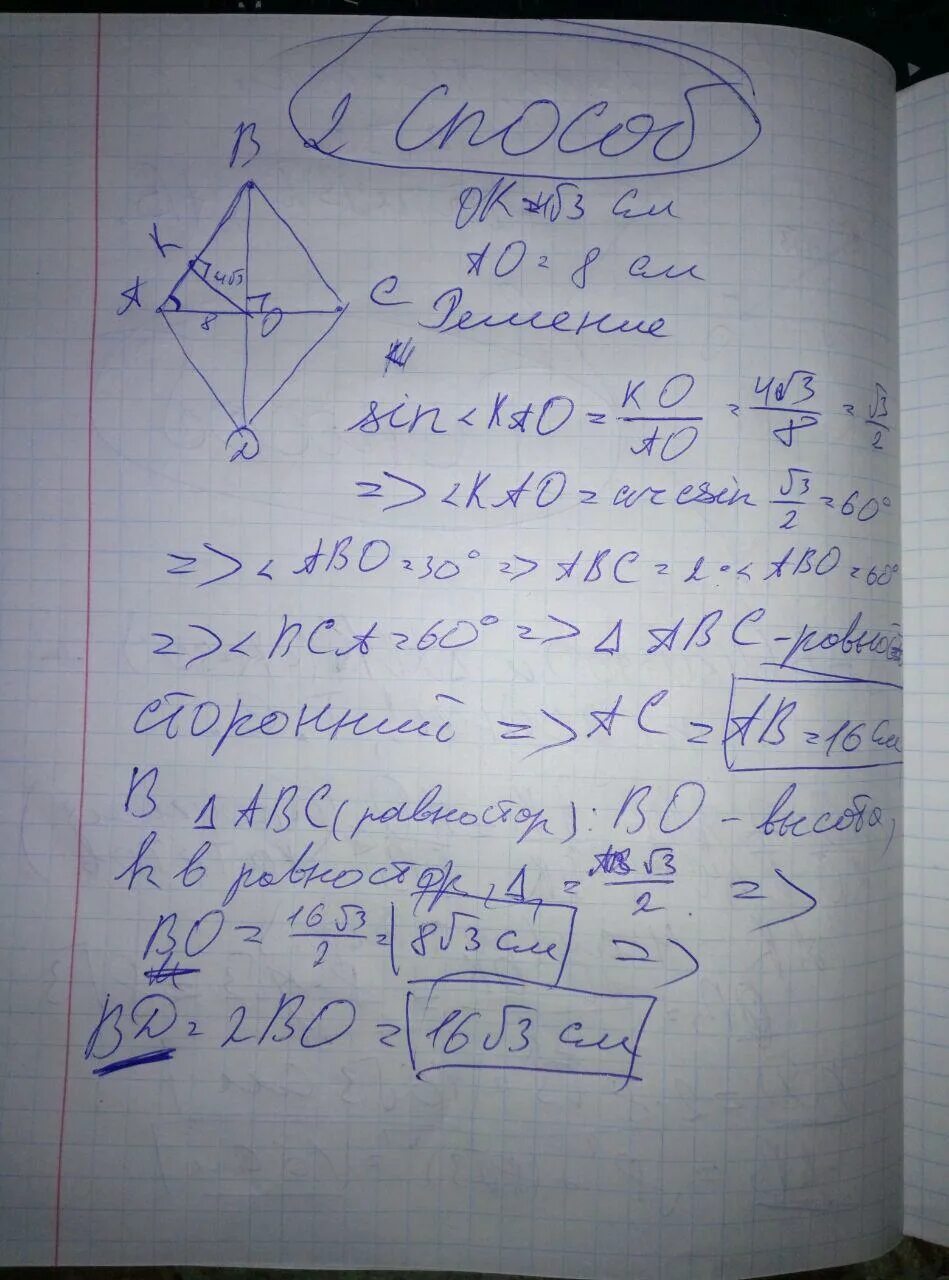 2 способ
B
OK = 4√3 см
K
4√3
AO = 8 см
A
8
O
C
Решение
D
sin <KAO = KO/AO = 4√3/8 = √3/2
=> <KAO = arcsin √3/2 = 60°
=> <ABO = 30° => ABC = 2·<ABO = 60°
=> <BCA = 60° => Δ ABC - равно
сторонний => AC = AB = 16 см
В Δ ABC (равностор): BO - высота,
h в равностор. Δ, = AB√3/2 =>
BO = 16√3/2 = 8√3 см =>
BD = 2BO = 16√3 см